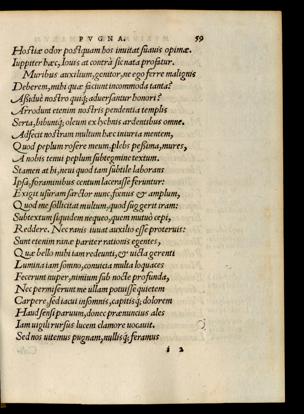 PVGNA. 59
Hostiæ odor postquam hos inuitat suauis opimæ.
Iuppiter hæc, Iouis at contrà sic nata profatur.
Muribus auxilium, genitor, ne ego ferre malignis
Deberem, mihi quæ faciunt incommoda tanta?
Assiduè nostro quiq; aduersantur honori?
Arrodunt etenim nostris pendentia templis
Serta, bibuntq; oleum ex lychnis ardentibus omne.
Adfecit nostram multum hæc iniuria mentem,
Quod peplum rosere meum. plebs pessima, mures,
A nobis tenui peplum subtegmine textum.
Stamen at hi, neui quod tam subtile laborans
Ipsa, foraminibus centum lacerasse feruntur:
Exigit usuram sarctor nunc, fœnus & amplum,
Quod me sollicitat multum, quod suggerit iram:
Subtextum siquidem nequeo, quem mutuò cepi,
Reddere. Nec ranis iuuat auxilio esse proteruis:
Sunt etenim ranæ pariter rationis egentes,
Quæ bello mihi tam redeunti, & uicta gerenti
Lumina iam somno, conuicia multa loquaces
Fecerunt nuper, nimium sub nocte profunda,
Nec permiserunt me ullam potuisse quietem
Carpere, sed iacui insomnis, capitisq; dolorem
Haud sensi paruum, donec prænuncius ales
Iam uigil rursus lucem clamore uocauit.
Sed nos uitemus pugnam, nullisq; feramus
i 2